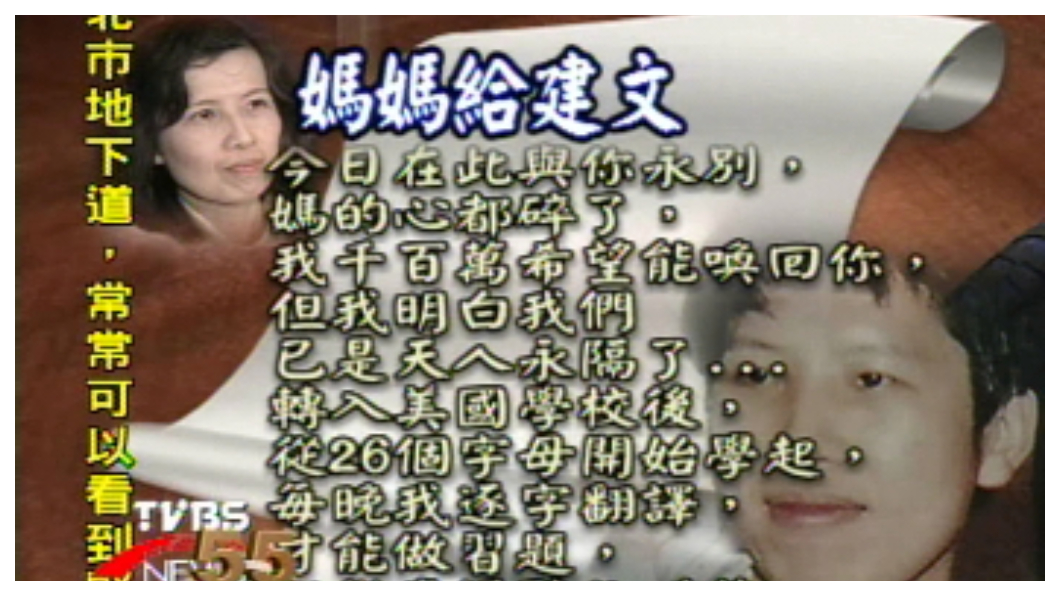 北市地下道，常常可以看到
媽媽給建文
今日在此與你永別，
媽的心都碎了，
我千百萬希望能喚回你，
但我明白我們
已是天人永隔了...
轉入美國學校後，
從26個字母開始學起，
每晚我逐字翻譯，
才能做習題，
TVBS
NEWS
55